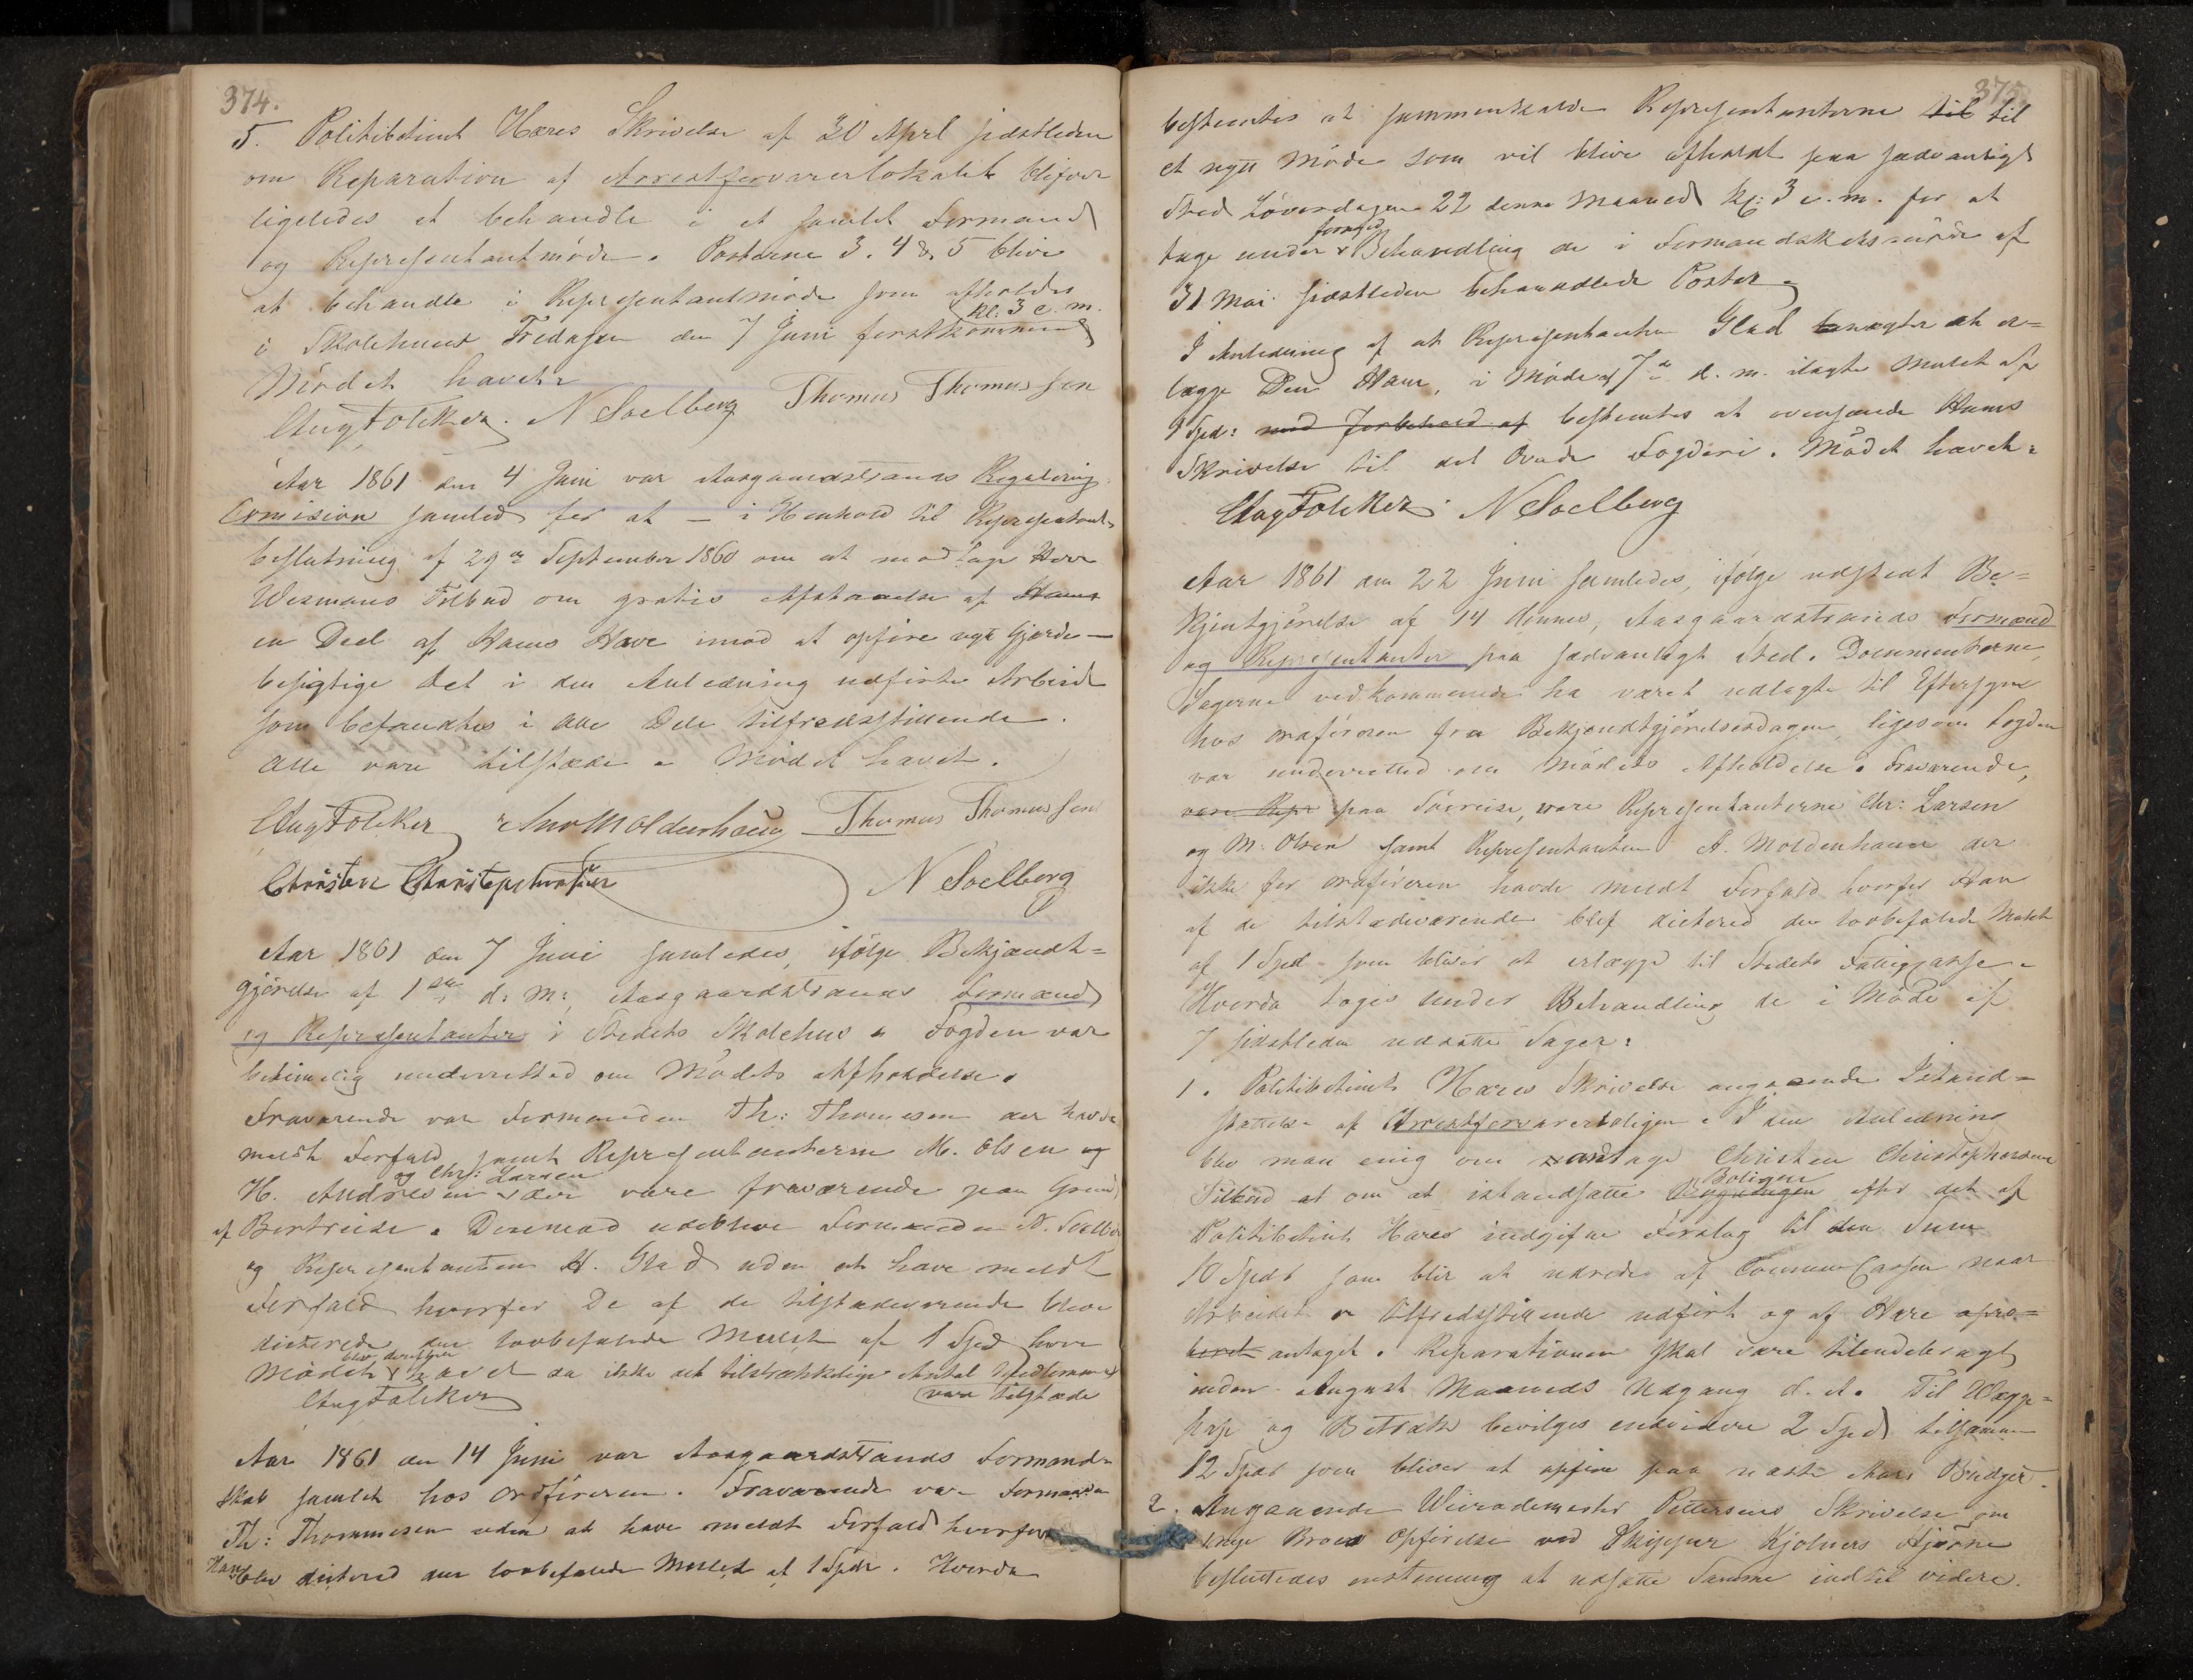 374.
5. Politibetient Hæres Skrivelse af 20 April sidstleden
om Reparation af Arrestforvarerlokalet blifver
ligeledes at behandle i et samlet Formand
og Repræsentantmöde. Posterne 3. 4 & 5 blive
at behandle i Repræsentantmöde som afholdes
i Skolehuset Fredagen den 7 Juni förstkommende kl: 3 e. m.
Mödet hævet
Aug Foleker. N Soelberg Thomas Thomassen
Aar 1861 den 4 Juni var Aasgaardstrands Regulering
Comision samled for at — i Henhold til Repræsentant
beslutning af 29de September 1860 om at modtage Herr
Wesmans Tilbud om gratis Afstaaelse af Hans
en Deel af Hans Have imod at opföre nyt Gjerde —
besigtige det i den Anledning udförte Arbeide
som befandtes i alle Dele tilfredsstillende.
Alle vare tilstæde. Mödet hævet.
Aug Foleker Moldenhauer Thomas Thomassen
Christen Christophersen N Soelberg
Aar 1861 den 7 Juni samledes, ifölge Bekjændt=
gjörelse af 1ste d: M:, Aasgaardstrands Formænd
og Repræsentanter i Stedets Skolehus. Fogden var
betimelig underretted om Mödets Afholdelse.
Fraværende var Formanden Th: Thomesen der havde
meldt Forfald samt Repræsentanterne M. Olsen og
H. Andresen og Chr: Larsen der vare fraværende paa Grund
af Bortreise. Desimod udebleve Formanden N. Soelberg
og Repræsentanten H. Glad uden at have meldt
Forfald hvorfor De af de tilstædeværende bleve
dicterede den lovbefalede Mulct af 1 Spd hver
Mödet blev derefter hævet da ikke det tilstrækkelige Antal Medlemmer
vare tilstæde
Aug Foleker
Aar 1861 den 14 Juni var Aasgaardstrands Formand=
skab samlet hos Ordföreren. Fraværende var Formanden
Th: Thommesen uden at have meldt Forfald hvorfor
Han blev dictered den lovbefalede Mulct af 1 Spdr. Hvorda
375
bestemtes at sammenkalde Repræsentanterne til til
et nytt Möde som vil blive afholdt paa sædvanligt
Sted Löverdagen 22 denne Maaned Kl: 3 e. m. for at
tage under fornyed Behandling de i Formandskabsmöde af
31 Mai sidstleden behandlede Poster.
I Anledning af at Repræsentanten Glad benægter at er=
lægge Den Ham, i Möde af 7de d. m. ilagte Mulct af
1 Spd: med forbehold af bestemtes at oversende Hans
Skrivelse til det Fogderi. Mödet hævet.
Aug Foleker N Soelberg
Aar 1861 den 22 Juni samledes, ifölge udstedt Be=
kjentgjörelse af 14 dennes, Aasgaardstrands Formænd
og Repræsentanter paa sædvanligt Sted. Documenterne,
Sagerne vedkommende ha været udlagte til Eftersyn
hos Ordföreren fra Bekjendtgjörelsesdagen, ligesom Fogden
var underretted om Mödets Afholdelse. Fraværende,
vare Repr paa Söreise, vare Repræsentanterne Chr: Larsen
og M: Olsen samt Repræsentanten A. Moldenhauer der
ikke for Ordföreren havde meldt Forfald hvorfor Han
af de tilstædeværende blef dictered den lovbefalede Mulct
af 1 Spd. som bliver at erlægge til Stedets Fattigcasse.
Hvorda toges under Behandling de i Möde af
7 sidstleden udsatte Sager:
1. Politibetient Hæres Skrivelse angaaende Istand=
sættelse af Arrestforvarerboligen. I den Anledning
blev man enig om modtage Christen Christophersens
Tilbud at om at istandsætte Bygningen Boligen efter det af
Politibetient Hæres indgifne Forslag til den Sum
10 Spdr som blir at udrede af CommunCassen naar
Arbeidet er tilfredsstillende udfört og af Hære apro=
beret antaget. Reparationen skal være tilendebragt
inden August Maaneds Udgang d. A. Til Vægge=
pap og Betræk bevilges endvidere 2 Spd tilsammen
12 Spdr som bliver at opföre paa næste Aars Budget.
2. Angaaende Veirodemester Pettersens Skrivelse om
Broes Opförelse ved Skipper Kjölners Hjörne
besluttedes enstemmig at udsætte Samme indtil videre.